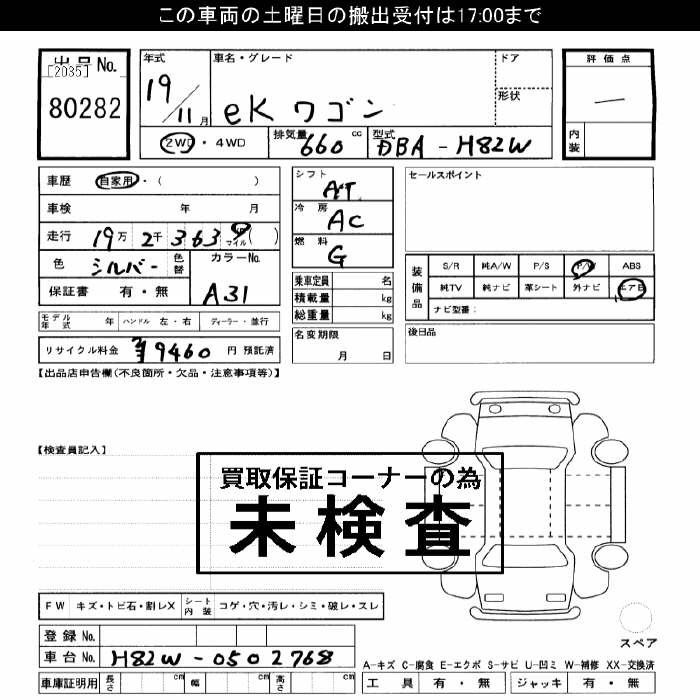 この車両の土曜日の搬出受付は17:00まで
出品No.
[2035]
80282
年式 車名・グレード ドア
19/11月 eKワゴン 形状
2WD・4WD 排気量 660 cc 型式 DBA - H82W
評価点
—
内装
車歴 自家用・( )
車検 年 月
走行 19万 2千 3 6 3 9 マイル( )
色 シルバー 色替 カラーNo.
保証書 有・無 A31
モデル年式 年 ハンドル 左・右 ディーラー・並行
リサイクル料金 ¥9460 円 預託済
シフト AT
冷房 AC
燃料 G
乗車定員 名
積載量 kg
総重量 kg
名変期限
月 日
セールスポイント
装備品 S/R 純A/W P/S P/W ABS
純TV 純ナビ 革シート 外ナビ エアB
ナビ型番:
後日品
【出品店申告欄(不良箇所・欠品・注意事項等)】
【検査員記入】
買取保証コーナーの為
未検査
FW キズ・トビ石・割レX シート内装 コゲ・穴・汚レ・シミ・破レ・スレ
登録No.
車台No. H82W-0502768
車庫証明用 長さ cm 幅 cm 高さ cm
スペア
A-キズ C-腐食 E-エクボ S-サビ U-凹ミ W-補修 XX-交換済
工具 有・無 ジャッキ 有・無